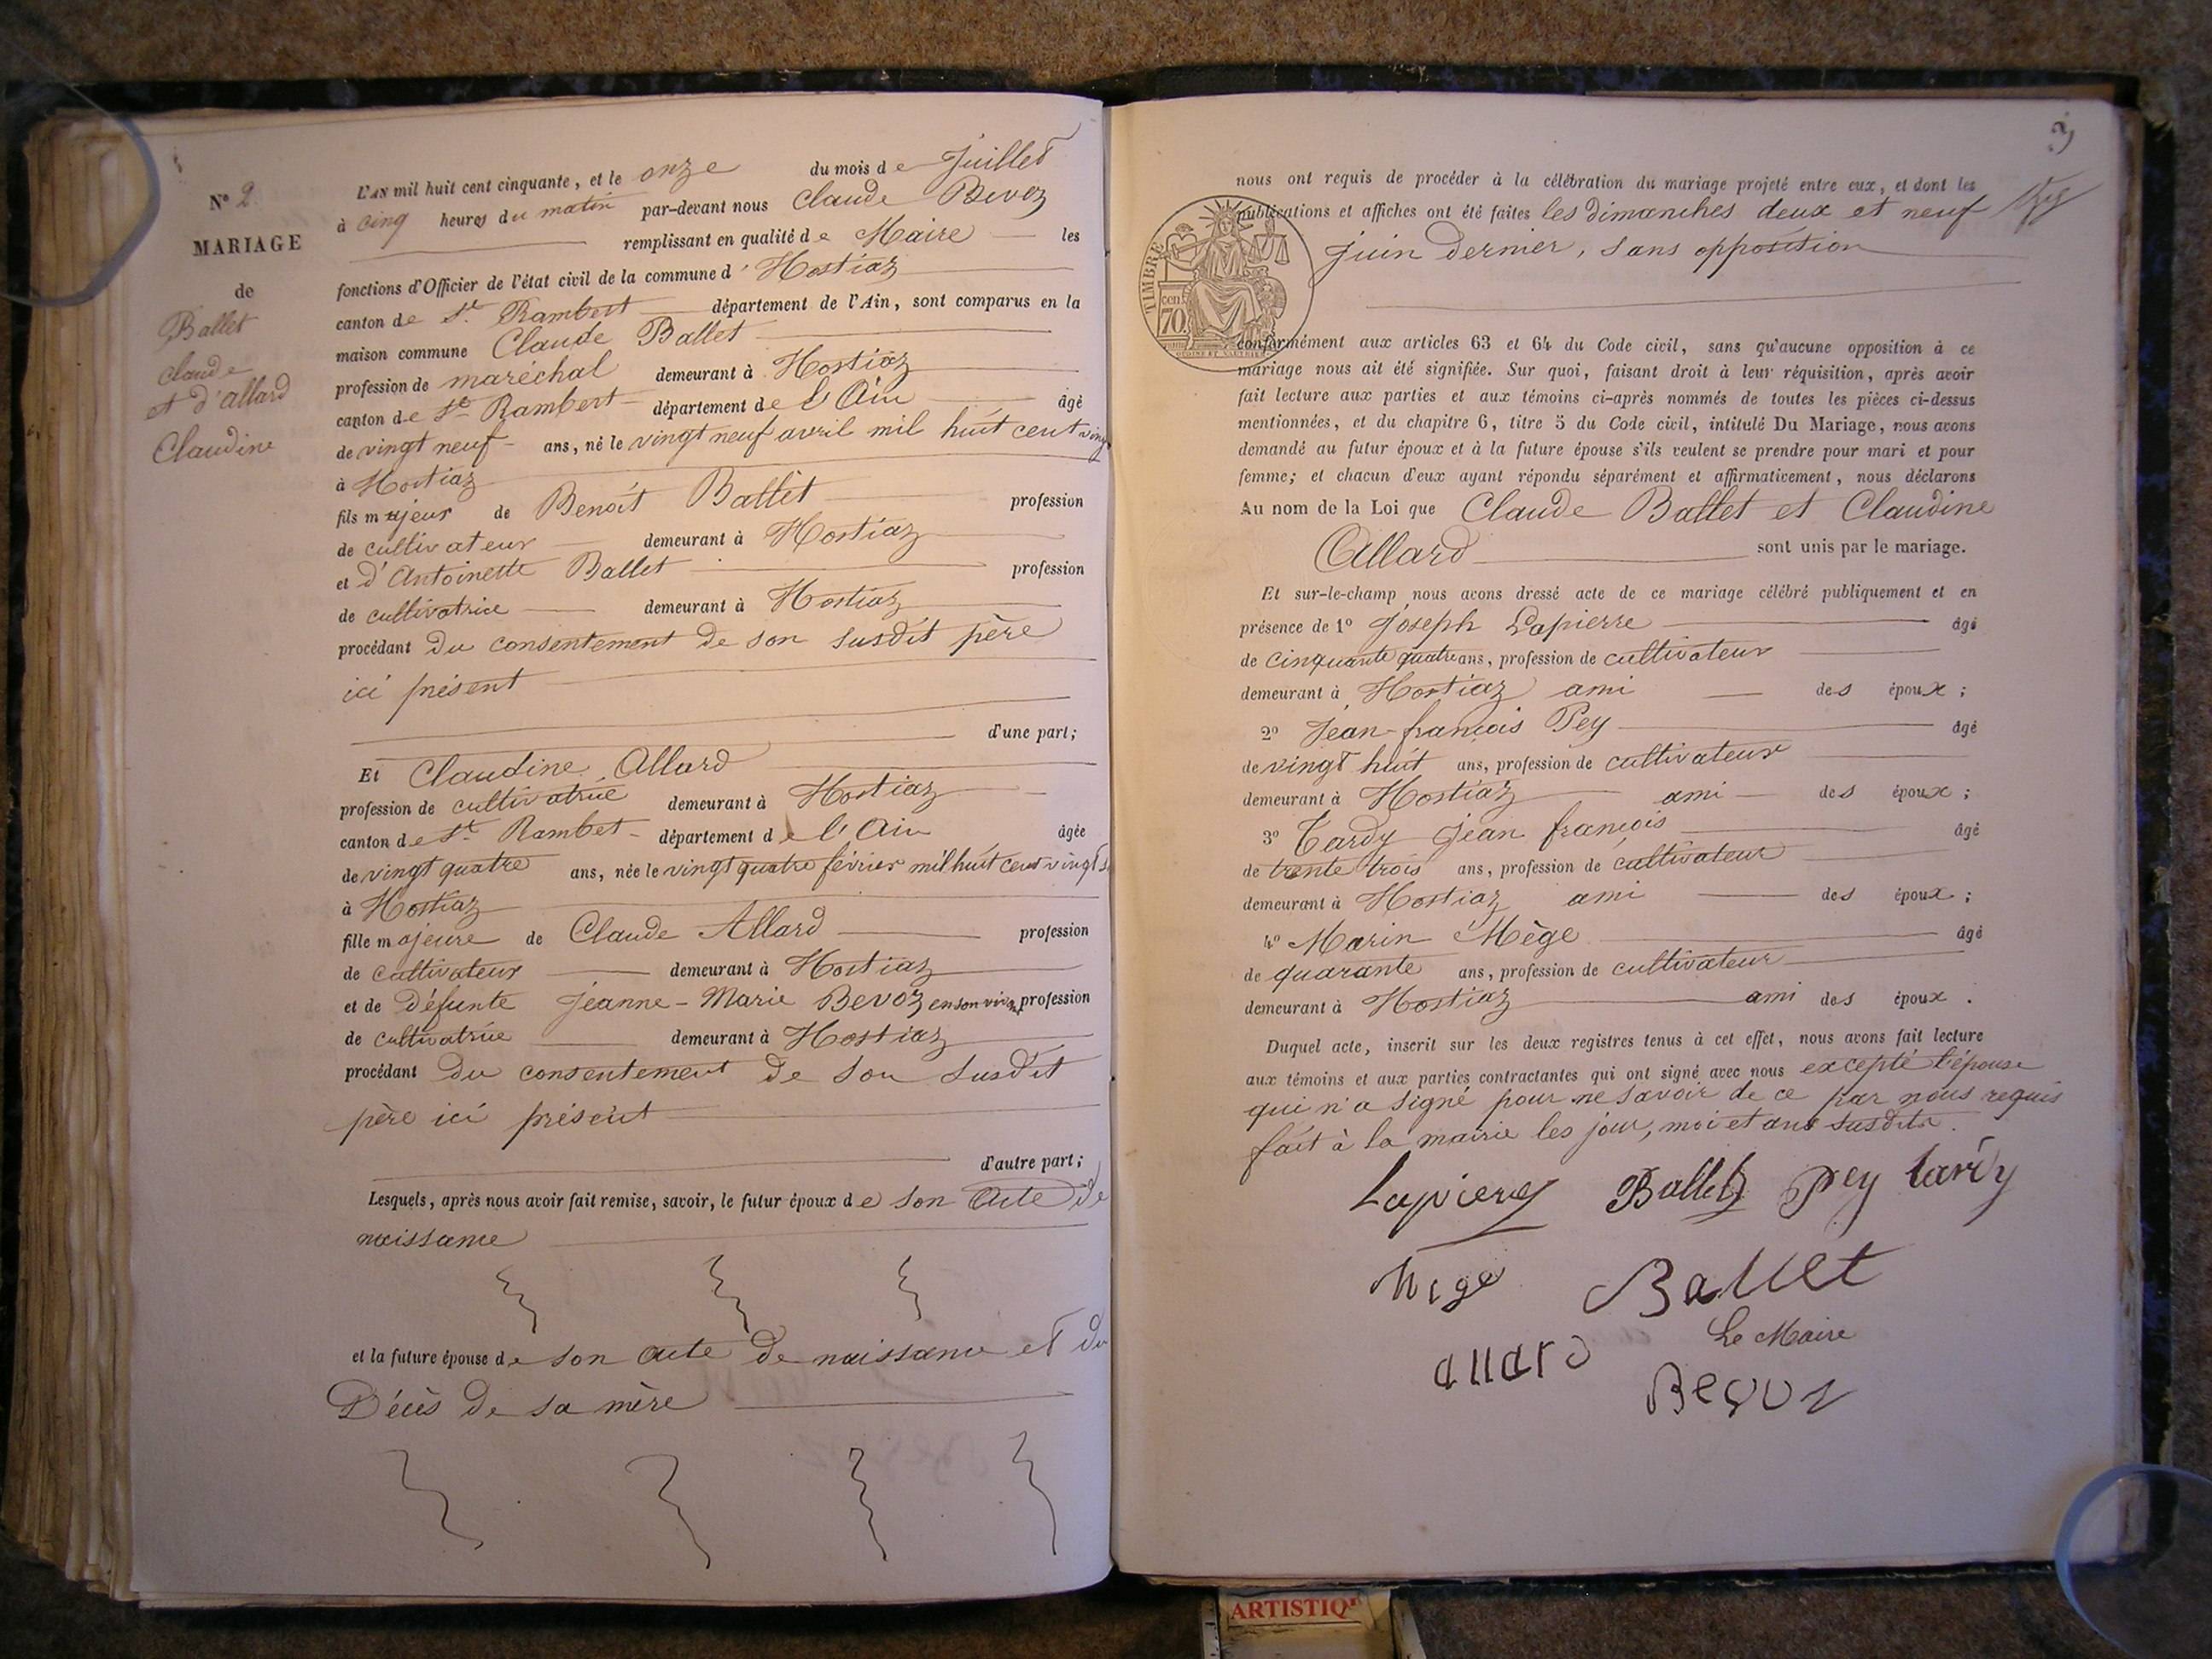 N° 2
MARIAGE
de
Ballet
Claude
et d'allard
Claudine
L'AN mil huit cent cinquante, et le onze du mois de Juillet
à cinq heures du matin par-devant nous Claude Bevoz
remplissant en qualité de Maire les
fonctions d'Officier de l'état civil de la commune d'Hostiaz
canton de St. Rambert département de l'Ain, sont comparus en la
maison commune Claude Ballet
profession de maréchal demeurant à Hostiaz
canton de St Rambert département de l'Ain âgé
de vingt neuf ans, né le vingt neuf avril mil huit cent vingt
à Hostiaz
fils majeur de Benoît Ballet profession
de cultivateur demeurant à Hostiaz
et d'Antoinette Ballet profession
de cultivatrice demeurant à Hostiaz
procédant du consentement de son susdit père
ici présent
d'une part;
Et Claudine Allard
profession de cultivatrice demeurant à Hostiaz
canton de St. Rambet département de l'Ain âgée
de vingt quatre ans, née le vingt quatre février mil huit cent vingt
à Hostiaz
fille majeure de Claude Allard profession
de cultivateur demeurant à Hostiaz
et de défunte Jeanne-Marie Bevoz en son profession
de cultivatrice demeurant à Hostiaz
procédant du consentement de son susdit
père ici présent
d'autre part;
Lesquels, après nous avoir fait remise, savoir, le futur époux de son acte de
naissance
et la future épouse de son acte de naissance et du
Décès de sa mère
3
nous ont requis de procéder à la célébration du mariage projeté entre eux, et dont les
publications et affiches ont été faites les dimanches deux et neuf
juin dernier, sans opposition
TIMBRE
70
cen
conformément aux articles 63 et 64 du Code civil, sans qu'aucune opposition à ce
mariage nous ait été signifiée. Sur quoi, faisant droit à leur réquisition, après avoir
fait lecture aux parties et aux témoins ci-après nommés de toutes les pièces ci-dessus
mentionnées, et du chapitre 6, titre 5 du Code civil, intitulé Du Mariage, nous avons
demandé au futur époux et à la future épouse s'ils veulent se prendre pour mari et pour
femme; et chacun d'eux ayant répondu séparément et affirmativement, nous déclarons
Au nom de la Loi que Claude Ballet et Claudine
Allard sont unis par le mariage.
Et sur-le-champ nous avons dressé acte de ce mariage célébré publiquement et en
présence de 1° Joseph Lapierre âgé
de cinquante quatre ans, profession de cultivateur
demeurant à Hostiaz ami des époux;
2° Jean-françois Pey âgé
de vingt huit ans, profession de cultivateur
demeurant à Hostiaz ami des époux;
3° Tardy Jean françois âgé
de trente trois ans, profession de cultivateur
demeurant à Hostiaz ami des époux;
4° Marin Mège âgé
de quarante ans, profession de cultivateur
demeurant à Hostiaz ami des époux.
Duquel acte, inscrit sur les deux registres tenus à cet effet, nous avons fait lecture
aux témoins et aux parties contractantes qui ont signé avec nous excepté l'épouse
qui n'a signé pour ne savoir de ce par nous requis
fait à la mairie les jour, moi et ans susdits.
Lapierre Ballet Pey tardy
Mege Ballet
Le Maire
allard
Bevoz
ARTISTIQ